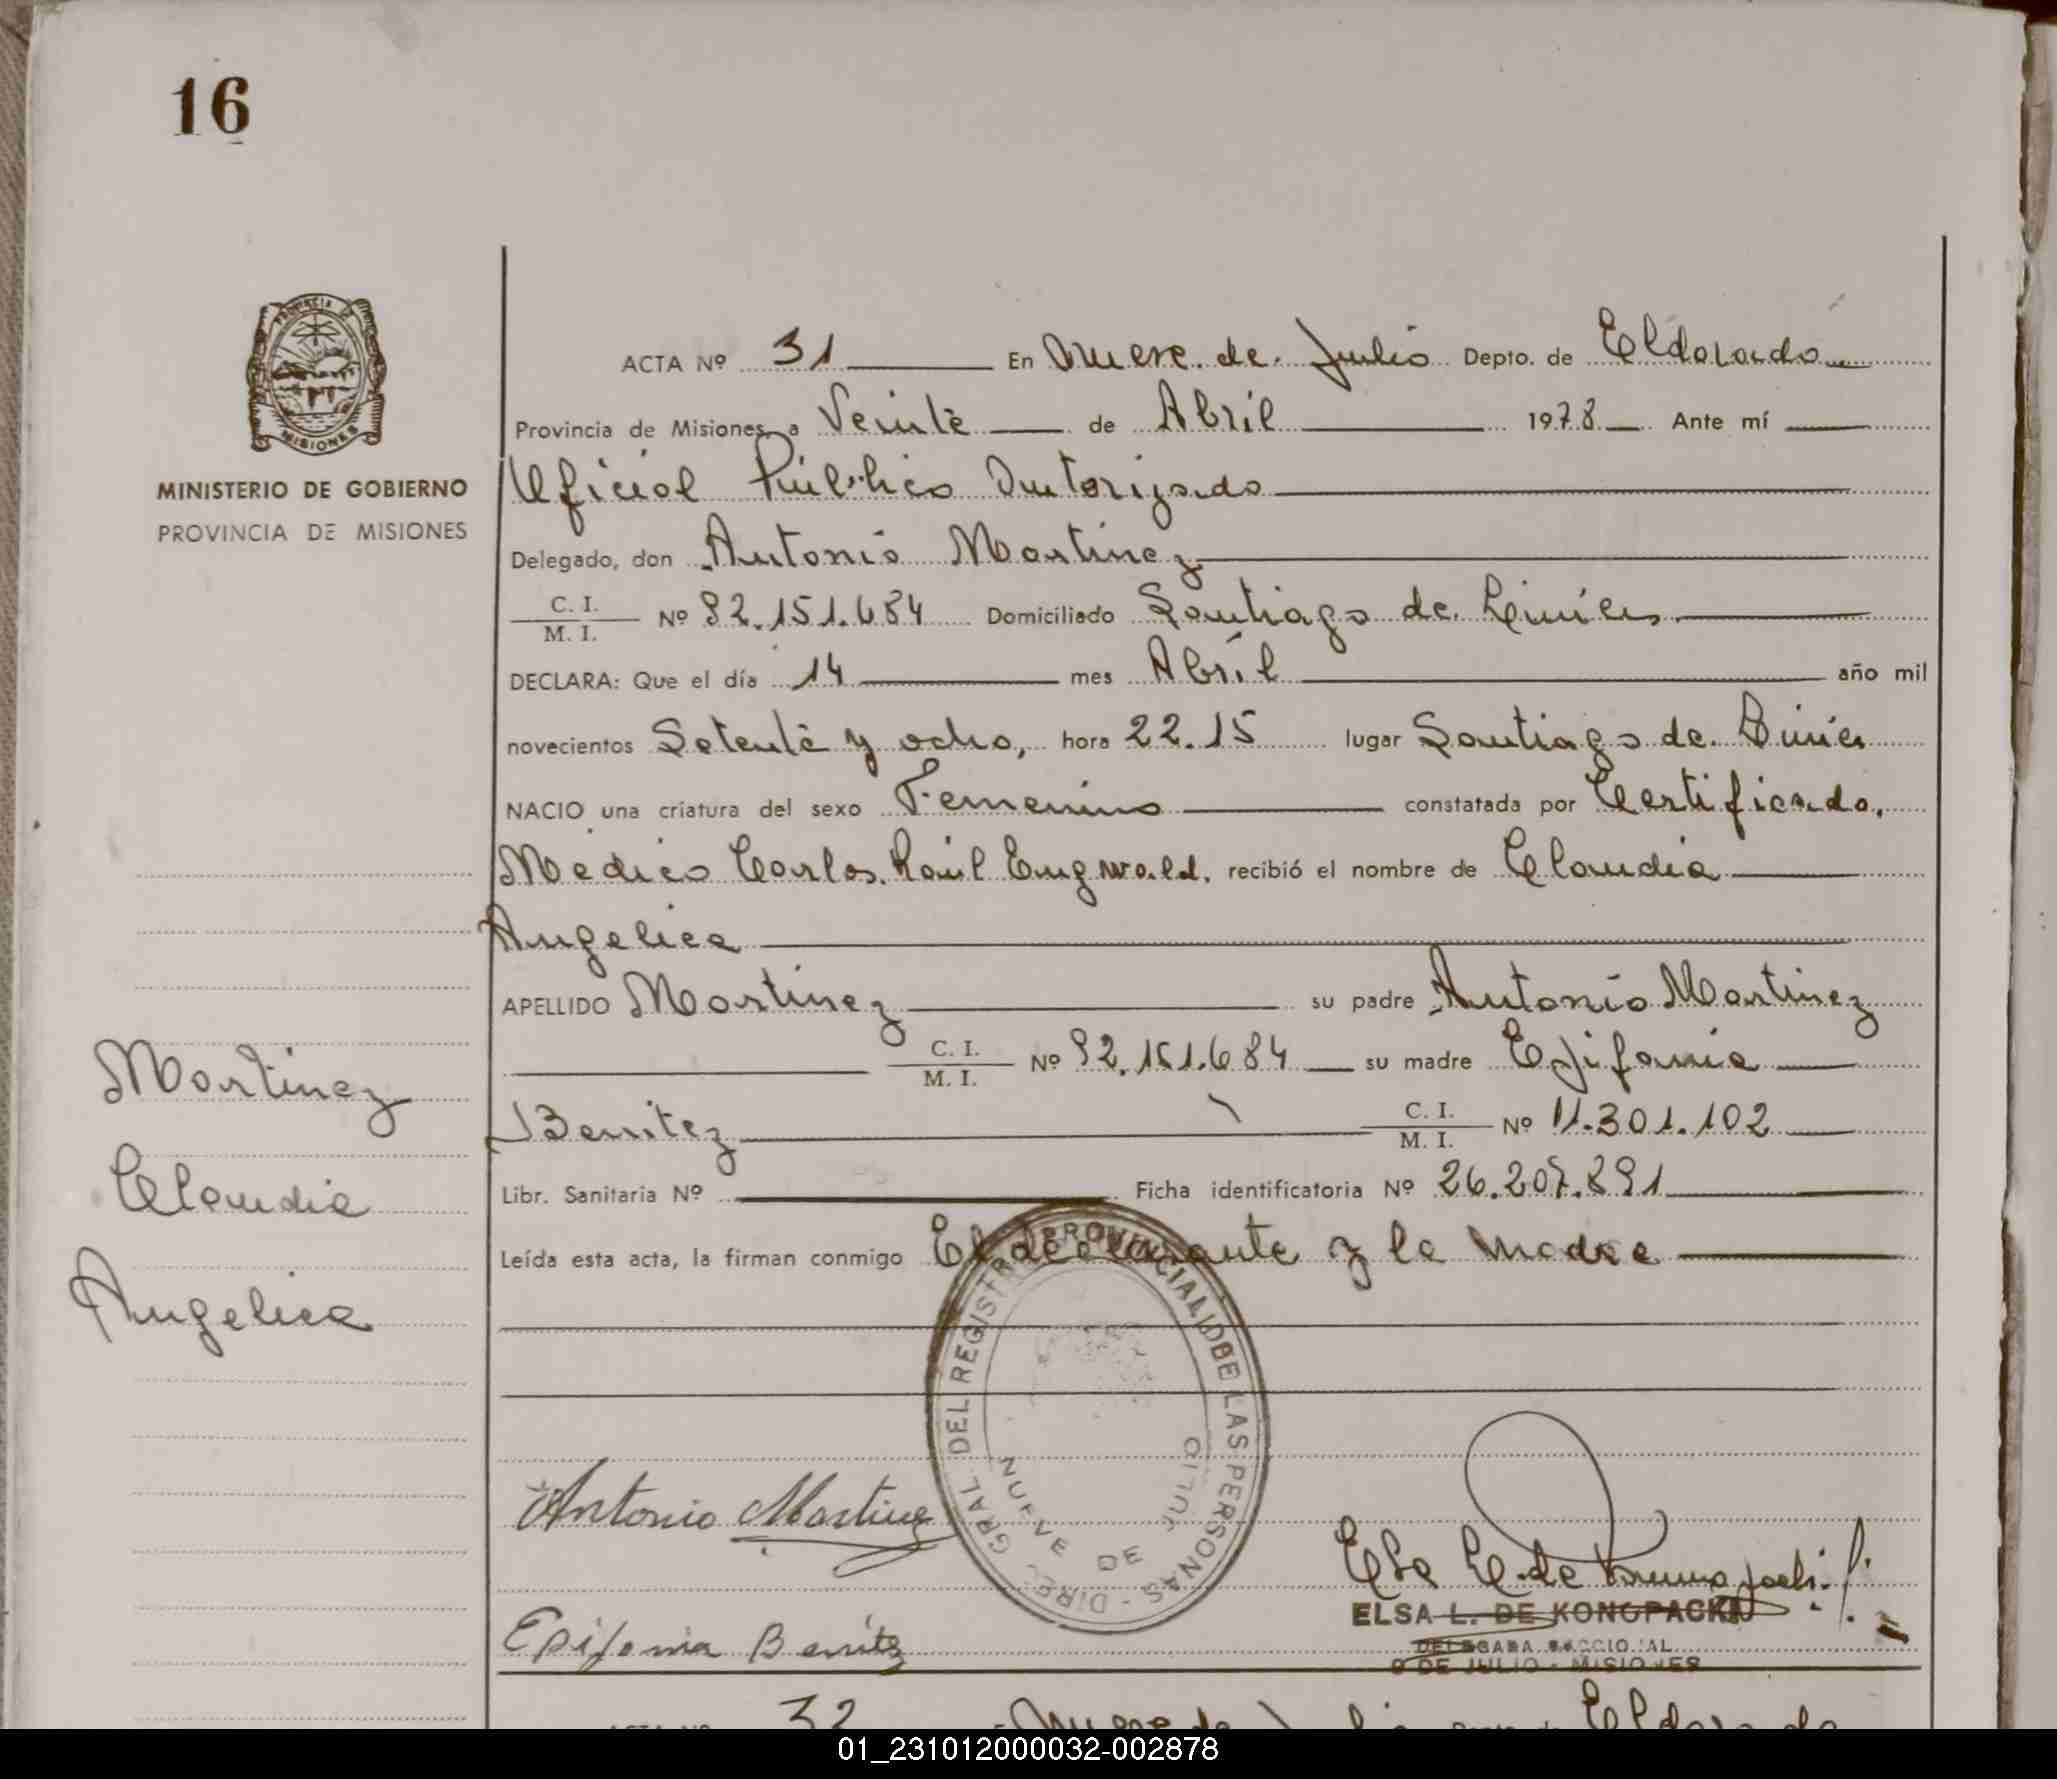 16
PROVINCIA DE
MISIONES
MINISTERIO DE GOBIERNO
PROVINCIA DE MISIONES
ACTA Nº 31 En Nueve de Julio Depto. de Eldorado
Provincia de Misiones, a Veinte de Abril 1978 Ante mí
Oficial Público Autorizado
Delegado, don Antonio Martinez
C. I.
M. I. Nº 92.151.684 Domiciliado Santiago de Liniers
DECLARA: Que el día 14 mes Abril año mil
novecientos Setenta y ocho, hora 22.15 lugar Santiago de Linier
NACIO una criatura del sexo Femenino constatada por Certificado
Medico Carlos Raúl Engwald, recibió el nombre de Claudia
Angelica
APELLIDO Martinez su padre Antonio Martinez
C. I.
M. I. Nº 92.151.684 su madre Epifania
Benitez C. I.
M. I. Nº 11.301.102
Libr. Sanitaria Nº Ficha identificatoria Nº 26.207.891
Leída esta acta, la firman conmigo El declarante y la madre
Martinez
Claudia
Angelica
DIREC. GRAL. DEL REGISTRO PROVINCIAL DE LAS PERSONAS -
NUEVE DE JULIO
Antonio Martinez
Epifania Benitez
Elsa L. de Konopacki
ELSA L. DE KONOPACKI
DELEGADA SECCIONAL
9 DE JULIO - MISIONES
ACTA Nº 32 En Nueve de Julio Depto. de Eldorado
01_231012000032-002878